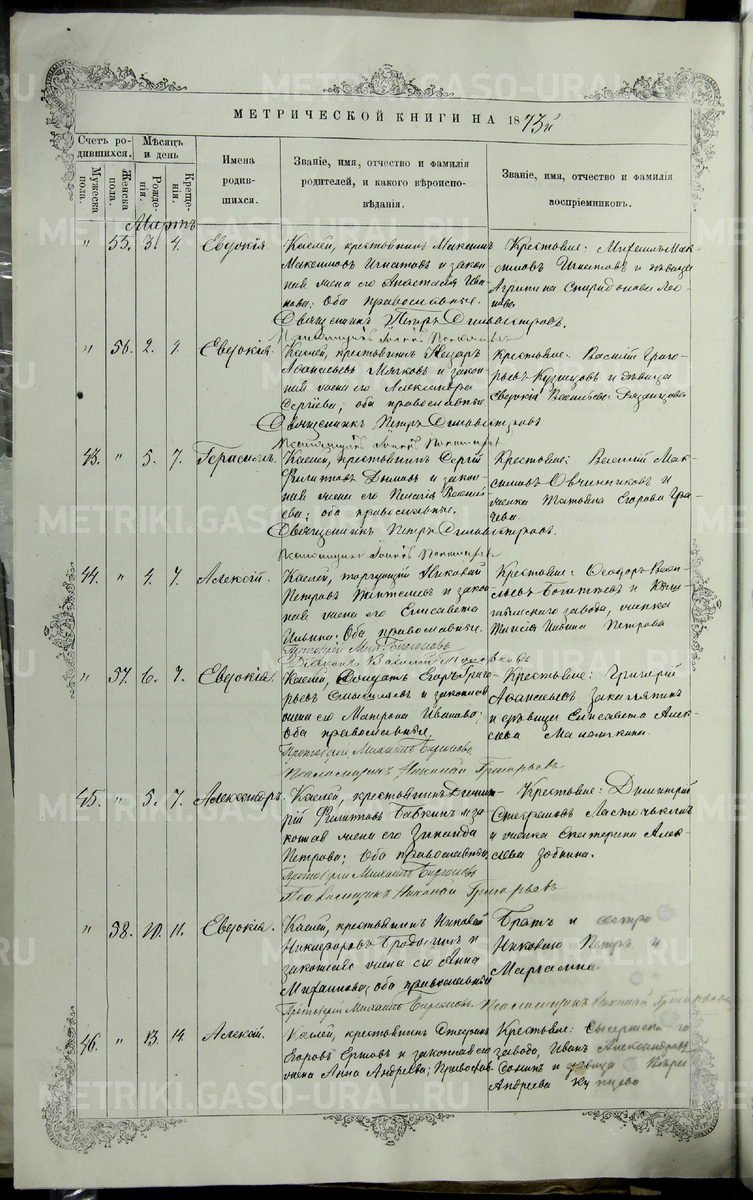 МЕТРИЧЕСКОЙ КНИГИ НА 1873й
Счетъ ро-
дившихся.
Мужеска
пола.
Женска
пола.
Мѣсяцъ
и день
Рожде-
нія.
Креще-
нія.
Имена
родив-
шихся.
Званіе, имя, отчество и фамилія
родителей, и какого вѣроиспо-
вѣданія.
Званіе, имя, отчество и фамилія
воспріемниковъ.
Мартъ
" 55. 3. 4. Евдокія.
Каслей, крестьянинъ Максимъ
Максимовъ Игнатовъ и закон-
ная жена его Анастасія Ива-
нова; Оба православные.
Священникъ Петръ
Крестовые: Михаилъ Мак-
симовъ Игнатовъ и дѣвица
Агрипина Спиридонова
" 56. 2. 4. Евдокія.
Каслей, крестьянинъ Назаръ
Аѳанасьевъ Мячковъ и закон-
ная жена его Александра
Сергіева; оба православные
Священникъ Петръ
Крестовые: Василій Григо-
рьевъ Кузнецовъ и дѣвица
Евдокія Васильева
43. " 5. 7. Герасимъ.
Каслей, крестьянинъ Сергій
Филиповъ и закон-
ная жена его Пелагія Василі-
ева; оба православные.
Священникъ Петръ
Крестовые: Василій Мак-
симовъ Овчинниковъ и
женка Татьяна Егорова Гра-
чева
44. " 4. 7. Алексѣй.
Каслей, торгующій Николай
Петровъ и закон-
ная жена его Елисавета
Ильина; Оба православные.
Протоіерей Мих. Бирюковъ
Діаконъ Василій
Крестовые: Ѳеодоръ Васи-
льевъ Богатыевъ и Кыш-
тымскаго завода, женка
Таисія Ивина Петрова
" 57. 6. 7. Евдокія.
Каслей, Солдатъ Егоръ Григо-
рьевъ и законная
жена его Матрона Иванова;
Оба православные
Протоіерей Михаилъ Бирюковъ
Псаломщикъ Николай Григорьевъ
Крестовые: Григорій
Аѳанасьевъ Закаляпинъ
и дѣвица Елисавета Алек-
сѣева Малямкина.
45. " 5. 7. Александръ.
Каслей, крестьянинъ Дими-
рій Филиповъ Бабкинъ и за-
конная жена его Зинаида
Петрова; Оба православные
Протоіерей Михаилъ Бирюковъ
Псаломщикъ Николай Григорьевъ
Крестовые: Димитрій
Стефановъ Ласточкинъ
и женка Екатерина Алек-
сѣева Зобнина.
" 58. 10. 11. Евдокія.
Каслей, крестьянинъ Николай
Никифоровъ и
законная жена его Анна
Михайлова; оба православные
Протоіерей Михаилъ Бирюковъ Псаломщикъ Николай Григорьевъ
Братъ и сестра
Николаю Петръ и
Марѳамна.
46. " 13. 14. Алексѣй.
Каслей, крестьянинъ Стефанъ
Егоровъ Ершовъ и законная его
жена Анна Андреева; Православ
Крестовые: Сысертскаго
завода, Иванъ Александровъ
Сонинъ и дѣвица Вѣра
Андреева Купцова
METRIKI.GASO-URAL.RU